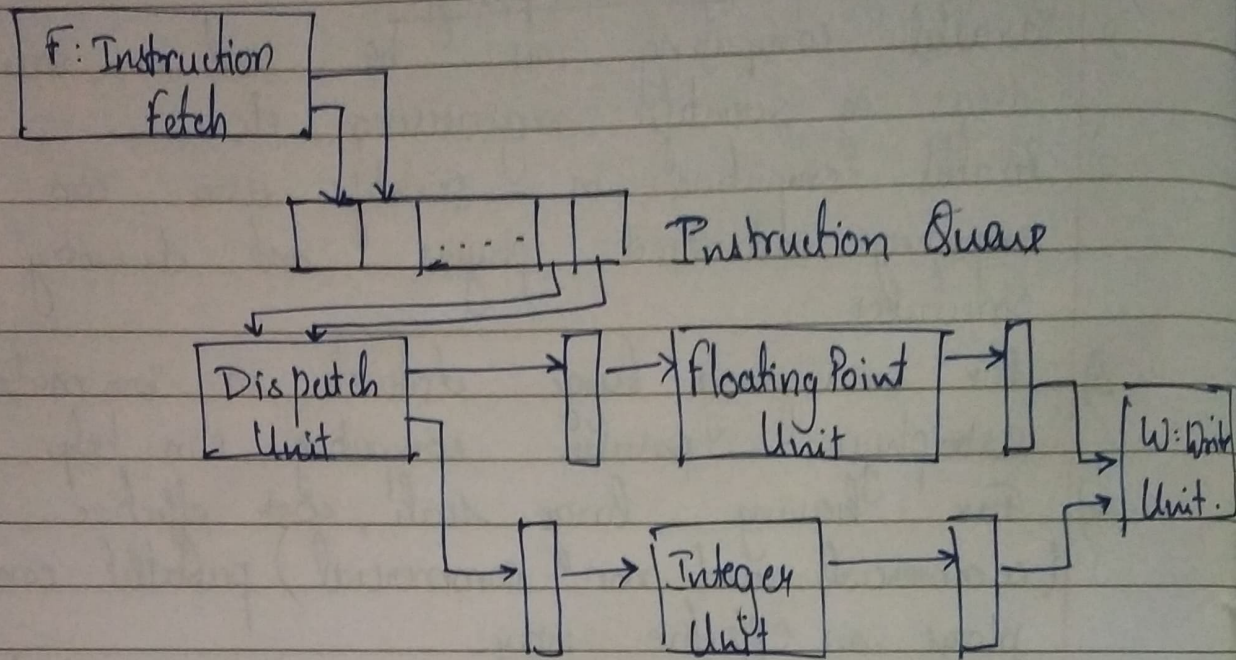 F: Instruction
Fetch
.....
Instruction Queue
Dispatch
Unit
Floating Point
Unit
W: Write
Unit.
Integer
Unit